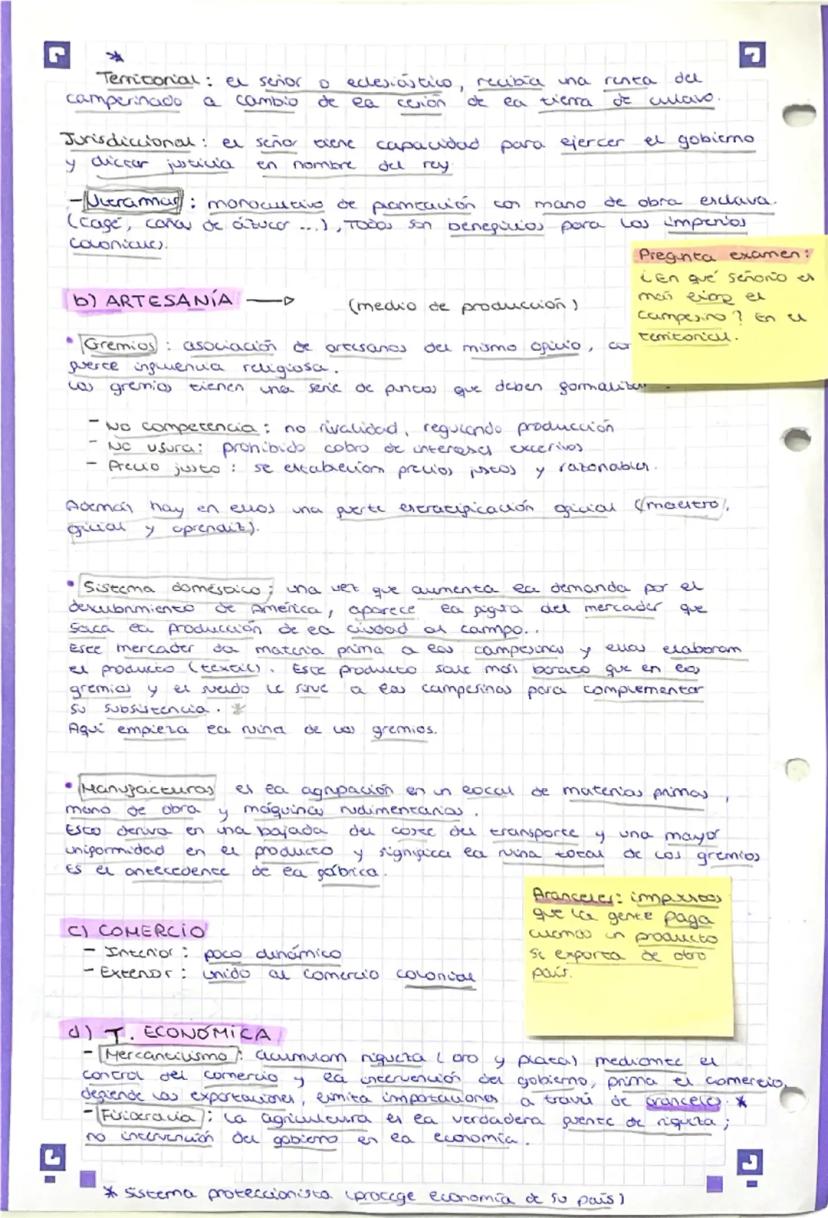 *
Territorial: el señor o eclesiástico, recibía una renta del
campesinado a cambio de la cesión de la tierra de cultivo.
Jurisdiccional: el señor tiene capacidad para ejercer el gobierno
y dictar justicia en nombre del rey.
- Ultramar: monocultivo de plantación con mano de obra esclava.
(café, cañas de azúcar ...), Todos son beneficios para los imperios
coloniales.
Pregunta examen:
¿En qué señorío es
más libre el
campesino? En el
territorial.
b) ARTESANÍA → (medio de producción)
• Gremios: asociación de artesanos del mismo oficio, con
fuerte influencia religiosa.
Los gremios tienen una serie de puntos que deben formalizar
- No competencia: no rivalidad, regulando producción
- No usura: prohibido cobro de intereses excesivos
- Precio justo: se establecían precios justos y razonables.
Además hay en ellos una fuerte estratificación oficial (maestro,
oficial y aprendiz).
• Sistema doméstico: una vez que aumenta la demanda por el
descubrimiento de América, aparece la figura del mercader que
saca la producción de la ciudad al campo..
Este mercader da materia prima a las campesinas y ellas elaboran
el producto (textil). Este producto sale más barato que en los
gremios y el sueldo le sirve a las campesinas para complementar
su subsistencia. *
Aquí empieza la ruina de los gremios.
• Manufacturas es la agrupación en un local de materias primas,
mano de obra y máquinas rudimentarias.
Esto deriva en una bajada del coste del transporte y una mayor
uniformidad en el producto y significa la ruina total de los gremios
Es el antecedente de la fábrica.
Aranceles: impuestos
que la gente paga
cuando un producto
se exporta de otro
país.
c) COMERCIO
- Interior: poco dinámico
- Exterior: unido al comercio colonial
d) T. ECONÓMICA
- Mercantilismo: acumulam riqueza (oro y plata) mediante el
control del comercio y la intervención del gobierno, prima el comercio,
defiende las exportaciones, limita importaciones a través de aranceles. *
- Fisiocracia: La agricultura es la verdadera fuente de riqueza;
no intervención del gobierno en la economía.
* Sistema proteccionista (protege economía de su país)